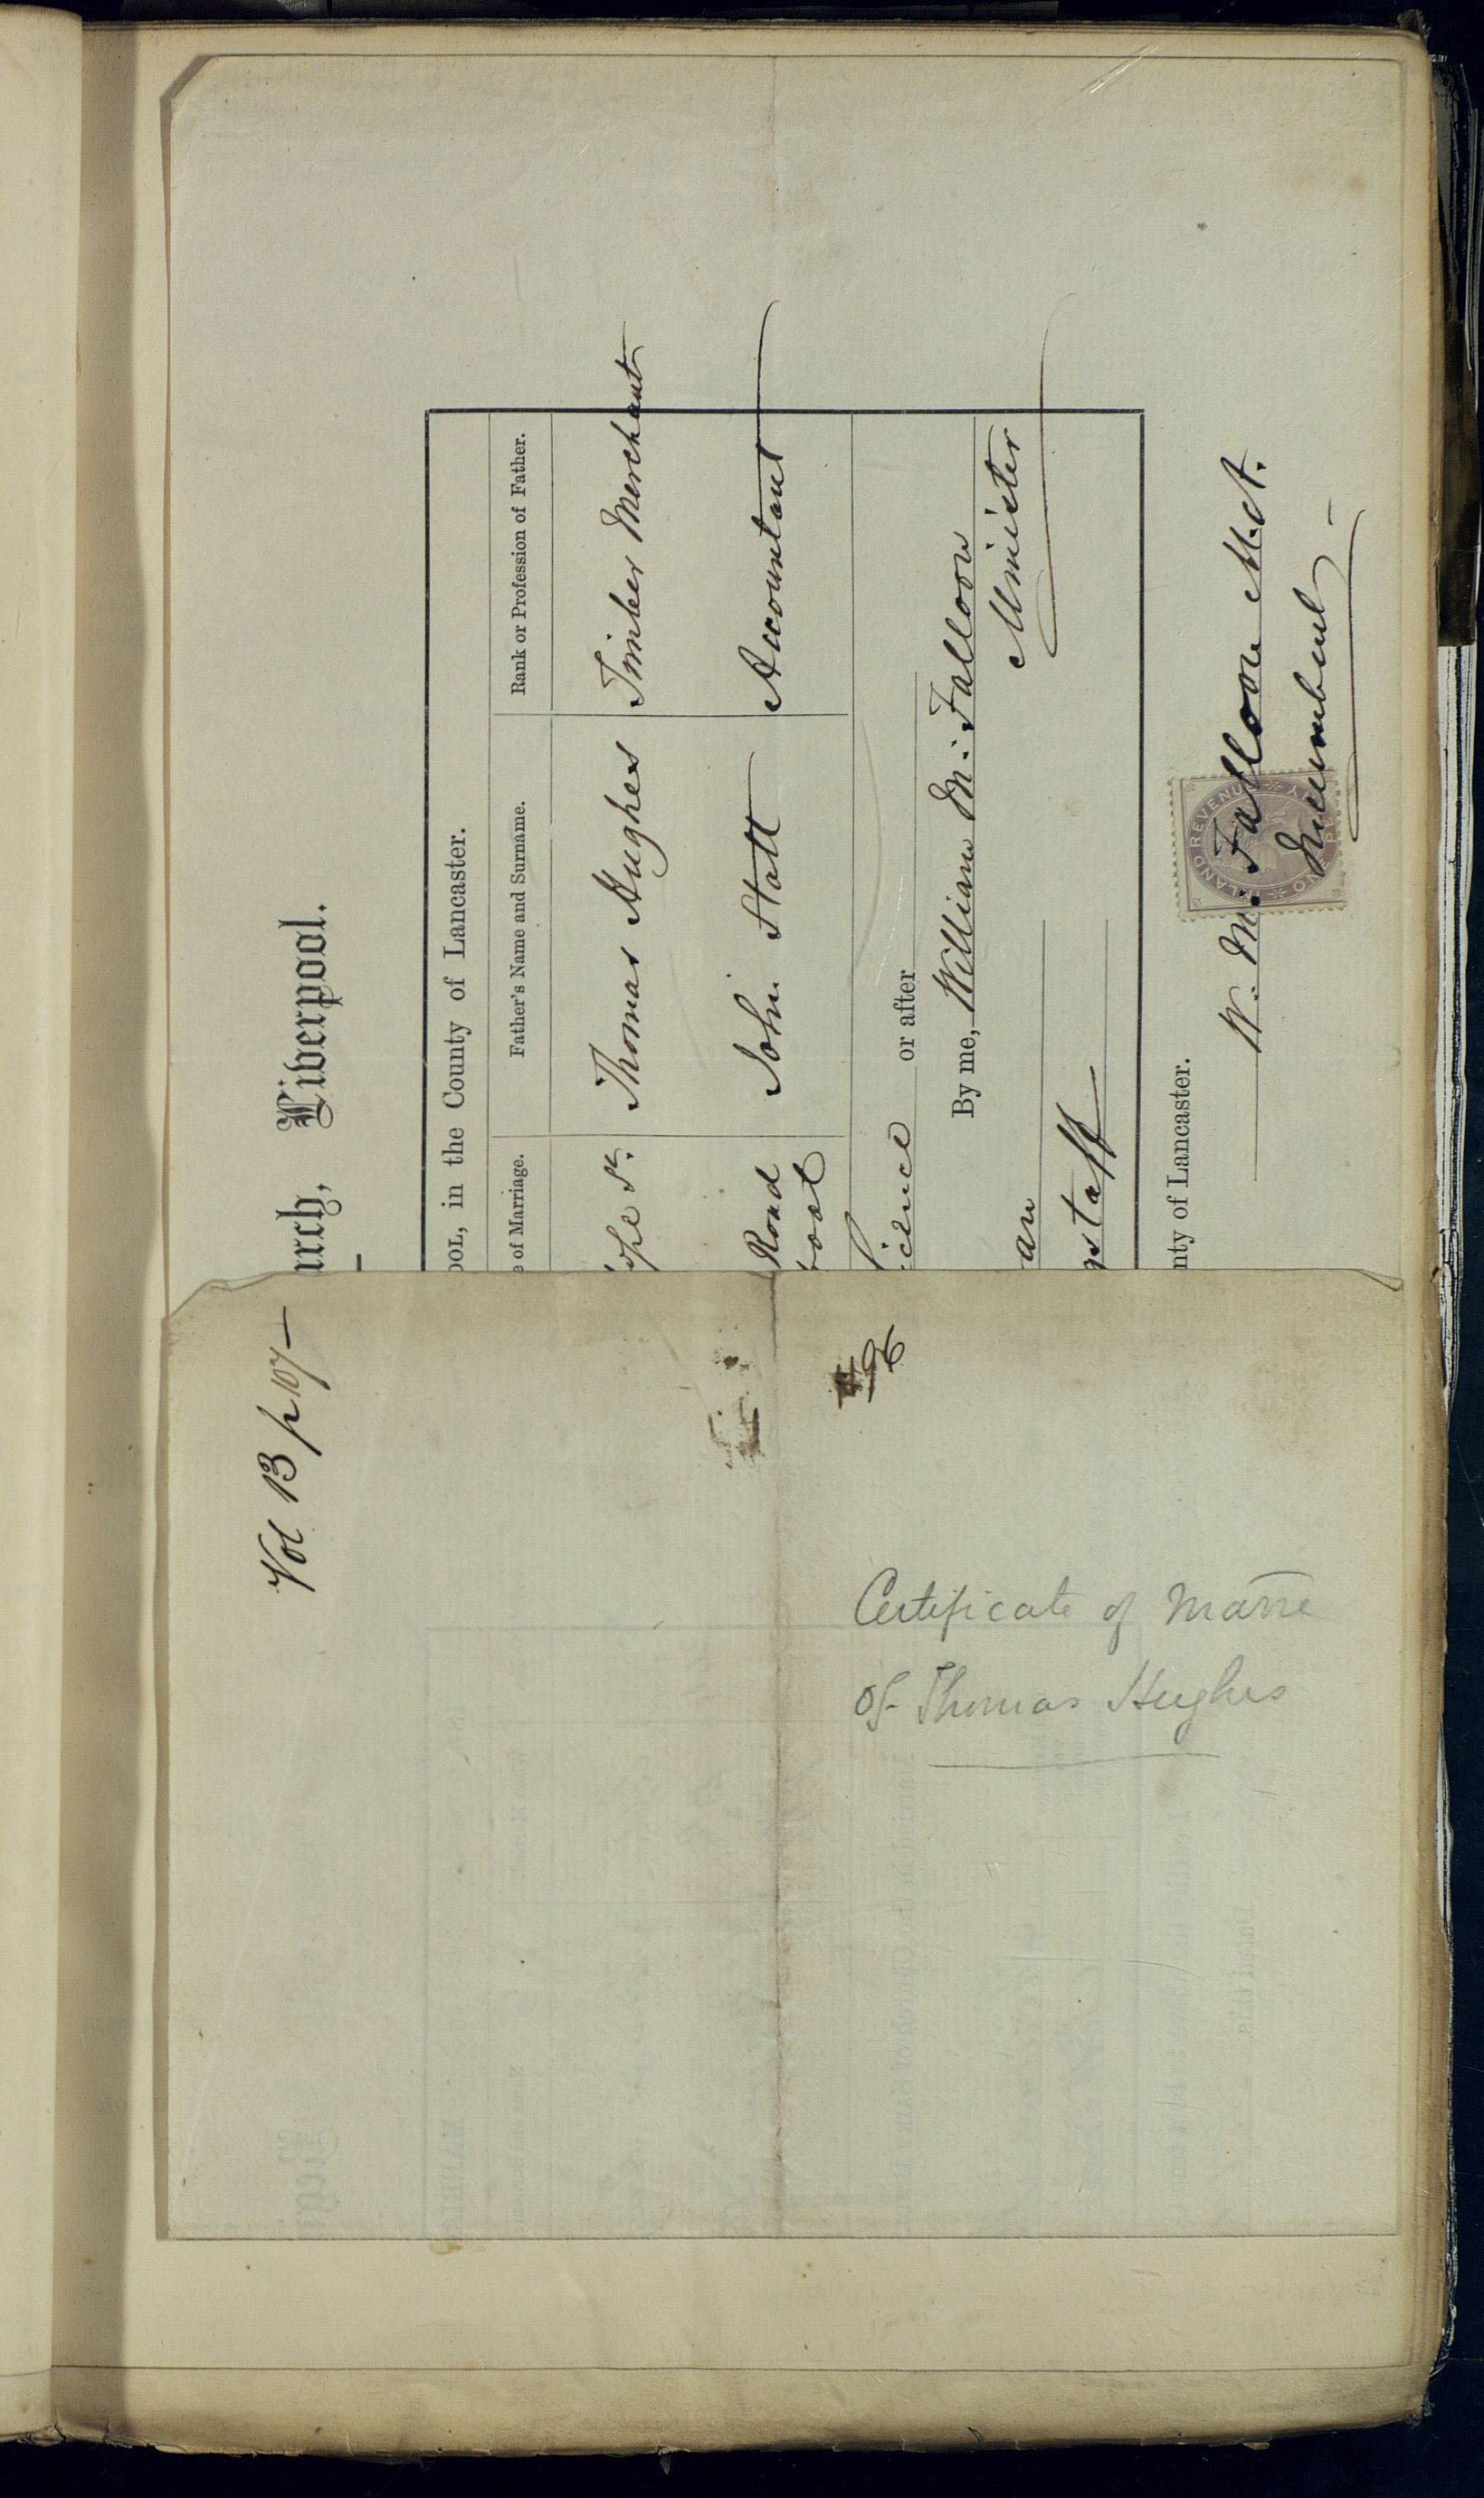 urch, Liverpool.
OOL, in the County of Lancaster.
e of Marriage. Father's Name and Surname. Rank or Profession of Father.
ope St. Thomas Hughes Timber Merchant
Road John Statt Accountant
icence or after
By me, William M. Falloon
Minister
an
gstaff
nty of Lancaster.
W. M. Falloon M.A.
Incumbent
INLAND REVENUE
Vol 13 p 107
Certificate of Marre
of Thomas Hughes